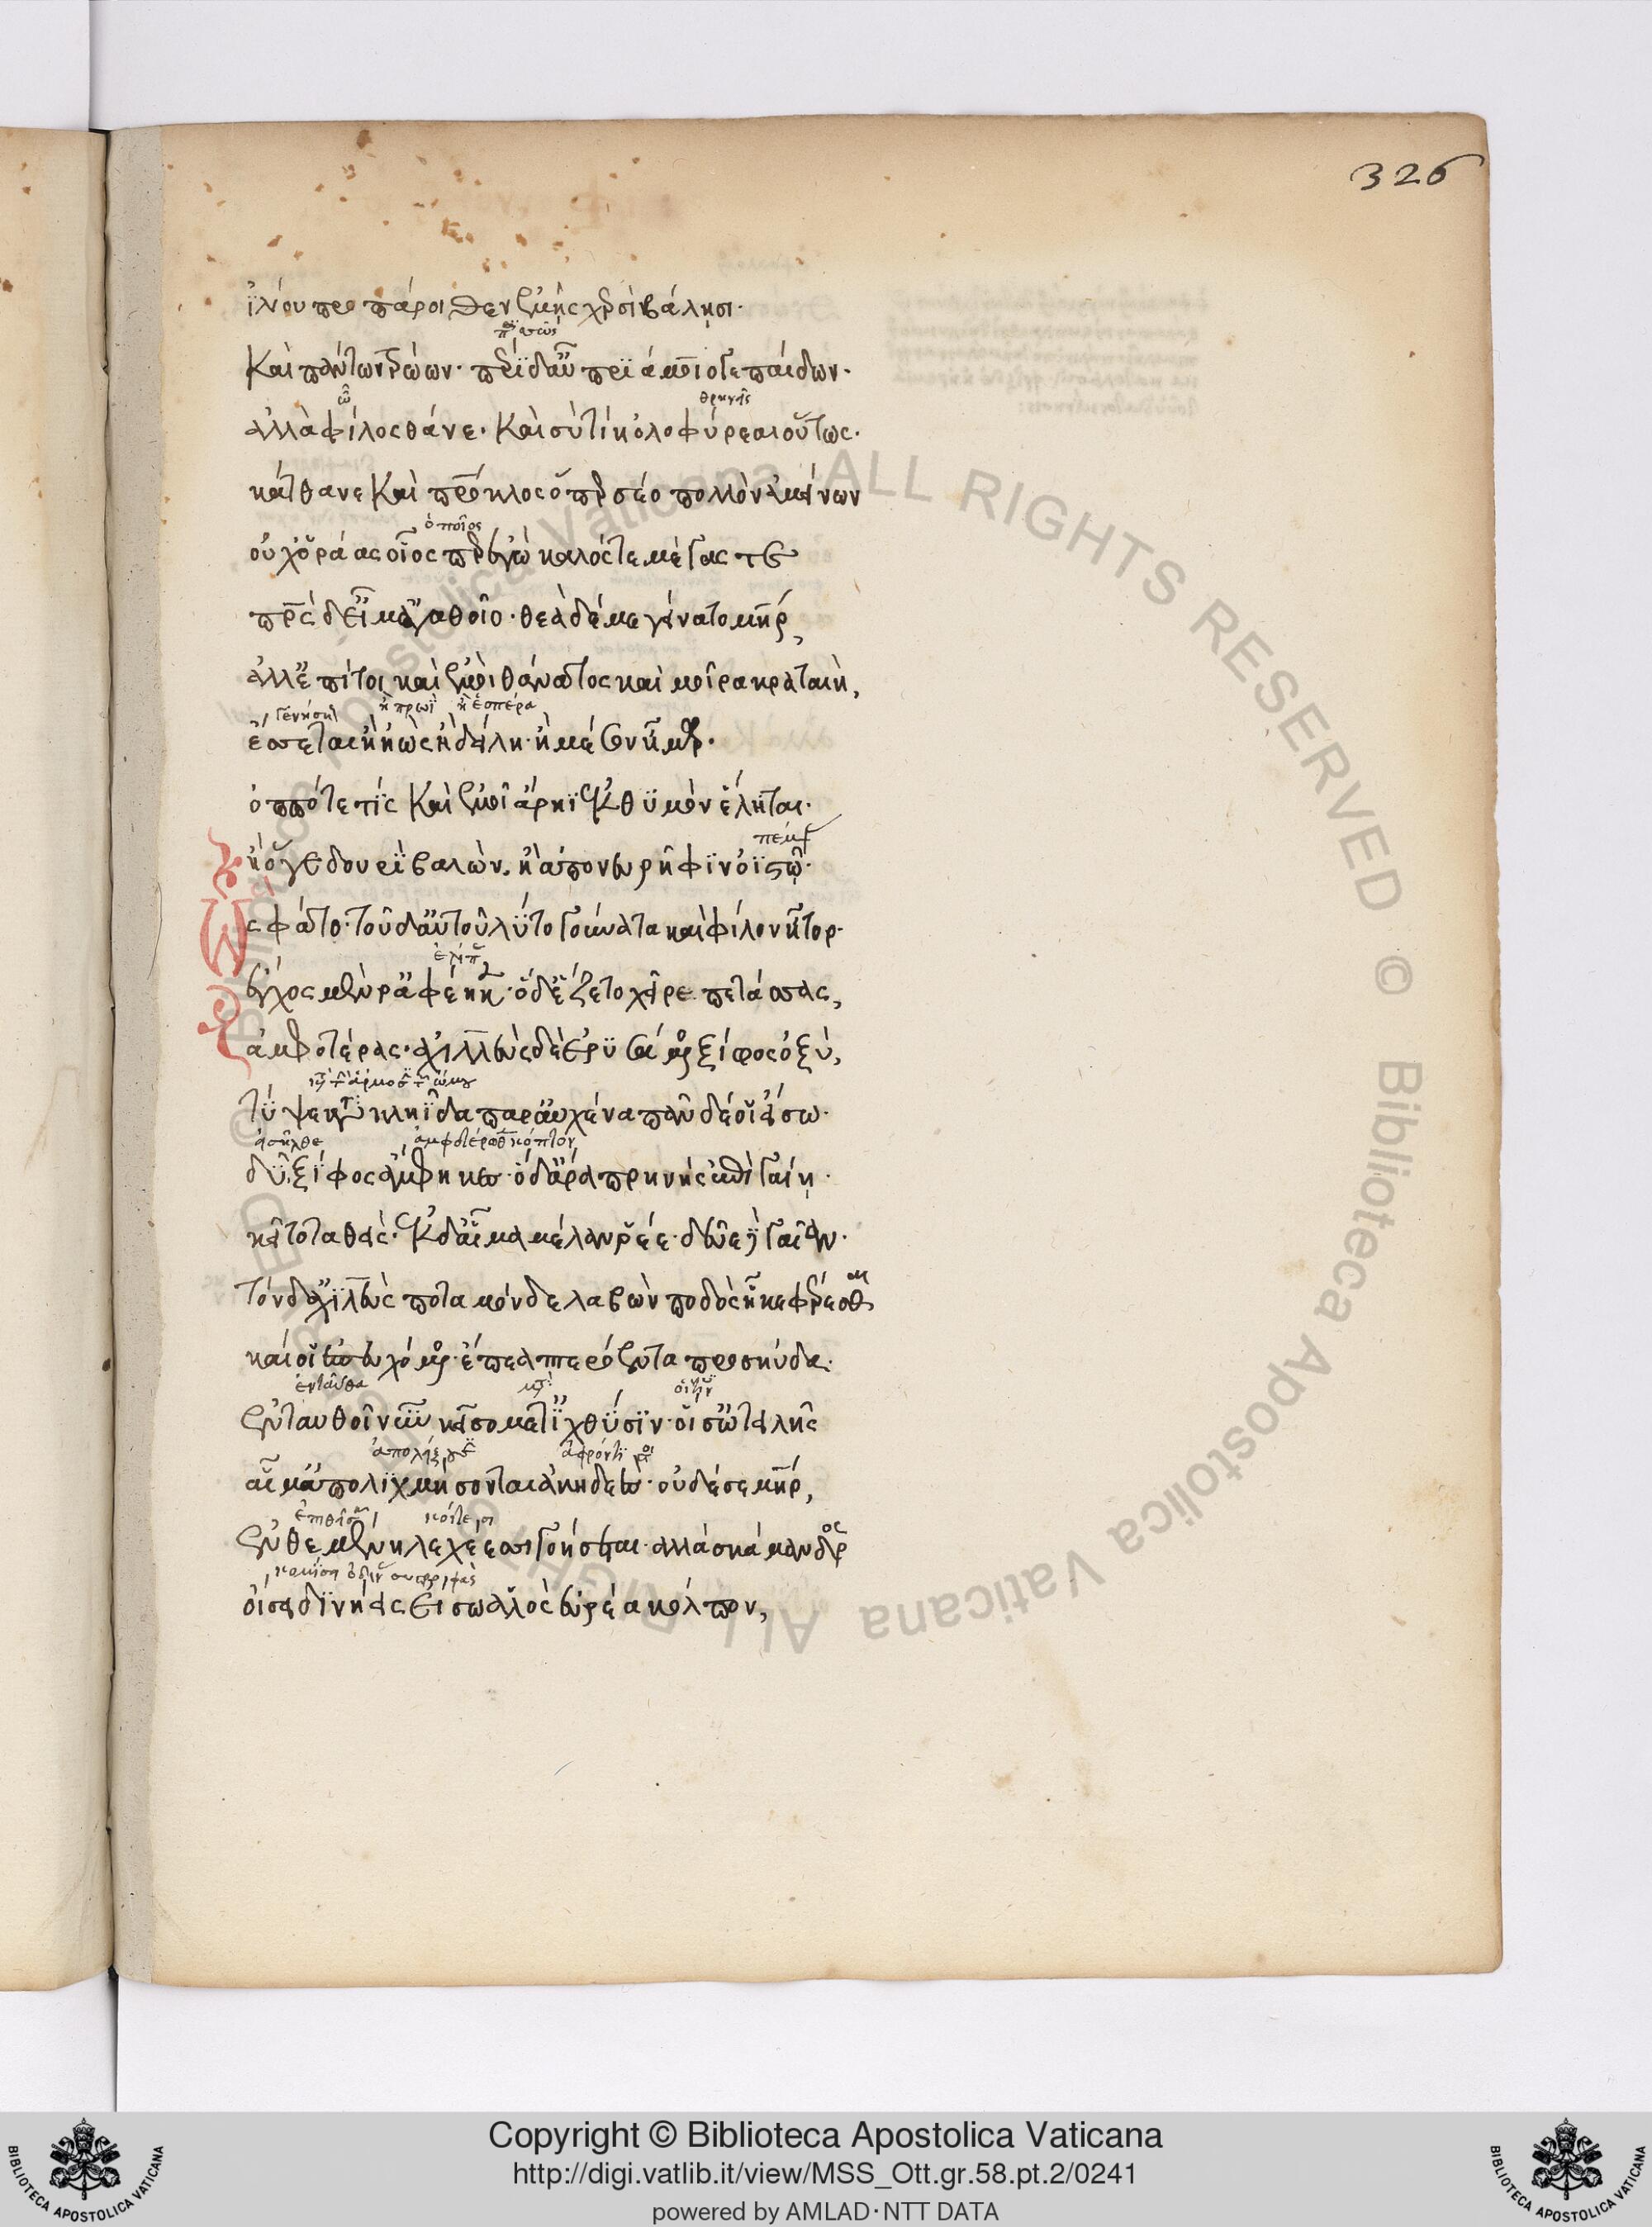 326
ἰλίου προπάροιθεν ἐμῆς χερσὶ βάλῃσι·
Καὶ πάντων τρώων· πέρι δ' αὖ πριάμοιό γε παίδων·
ὦ θρηνεῖς
ἀλλὰ φίλος θάνε· Καὶ σύ τίη ὀλοφύρεαι οὕτως·
κάτθανε Καὶ πάτροκλος ὅπερ σέο πολλὸν ἀμείνων
ὁποῖος
οὐχ ὁράας οἷος περ ἐγὼ καλός τε μέγας τε
πατρὸς δ' εἴμ' ἀγαθοῖο· θεὰ δέ με γείνατο μήτηρ,
ἀλλ' ἔπί τοι καὶ ἐμοὶ θάνατος καὶ μοῖρα κραταιὴ,
γενήσεται ἢ πρωῒ ἢ ἑσπέρα
ἔσσεται ἢ ἠὼς ἢ δείλη· ἢ μέσον ἦμαρ·
ὁππότε τίς Καὶ ἐμοῖ ἄρηϊ ἐκ θυμὸν ἕληται·
ἢ ὅγε δουρὶ βαλὼν. ἢ ἀπὸ νευρῆφιν ὀϊστῷ·
ὣς φάτο· τοῦ δ' αὐτοῦ λύτο γούνατα καὶ φίλον ἦτορ·
ἔγχος μὲν ῥ' ἀφέηκεν· ὁ δ' ἕζετο χεῖρε πετάσσας,
ἀμφοτέρας· ἀχιλλεὺς δὲ ἐρυσσάμενος ξίφος ὀξύ,
τύψε κατὰ κληῗδα παρ' αὐχένα πᾶν δέ οἱ εἴσω·
εἰσῆλθε ἀμφοτέρωθεν κόπτον
δῦ ξίφος ἄμφηκες· ὁ δ' ἄρα πρηνὴς ἐπὶ γαίῃ·
κεῖτο ταθείς· ἐκ δ' αἷμα μέλαν ῥέε· δεῦε δὲ γαῖαν·
τόνδ' ἀχιλεὺς ποταμόνδε λαβὼν ποδὸς ἧκε φέρεσθαι
καί οἱ ἐπευχόμενος· ἔπεα πτερόεντα προσηύδα·
ἐνταῦθα
ἐνταυθοῖ νῦν κεῖσο μετ' ἰχθύσιν· οἵ σ' ὠτειλῆς
αἷμ' ἀπολιχμήσονται ἀκηδέες· οὐδέ σε μήτηρ,
ἐνθεμένη λεχέεσσι γοήσεται· ἀλλὰ σκάμανδρος
οἴσει δινήεις εἴσω ἁλὸς εὐρέα κόλπον,
Copyright © Biblioteca Apostolica Vaticana
http://digi.vatlib.it/view/MSS_Ott.gr.58.pt.2/0241
powered by AMLAD·NTT DATA
BIBLIOTECA APOSTOLICA VATICANA
BIBLIOTECA APOSTOLICA VATICANA
© Biblioteca Apostolica Vaticana ALL RIGHTS RESERVED © Biblioteca Apostolica Vaticana ALL RIGHTS RESERVED